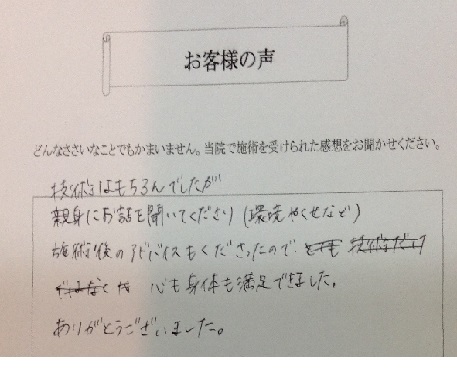 お客様の声
どんなささいなことでもかまいません。当院で施術を受けられた感想をお聞かせください。
技術はもちろんでしたが
親身にお話を聞いてくださり(環境やくせなど)
施術後のアドバイスもくださったので
心も身体も満足できました。
ありがとうございました。